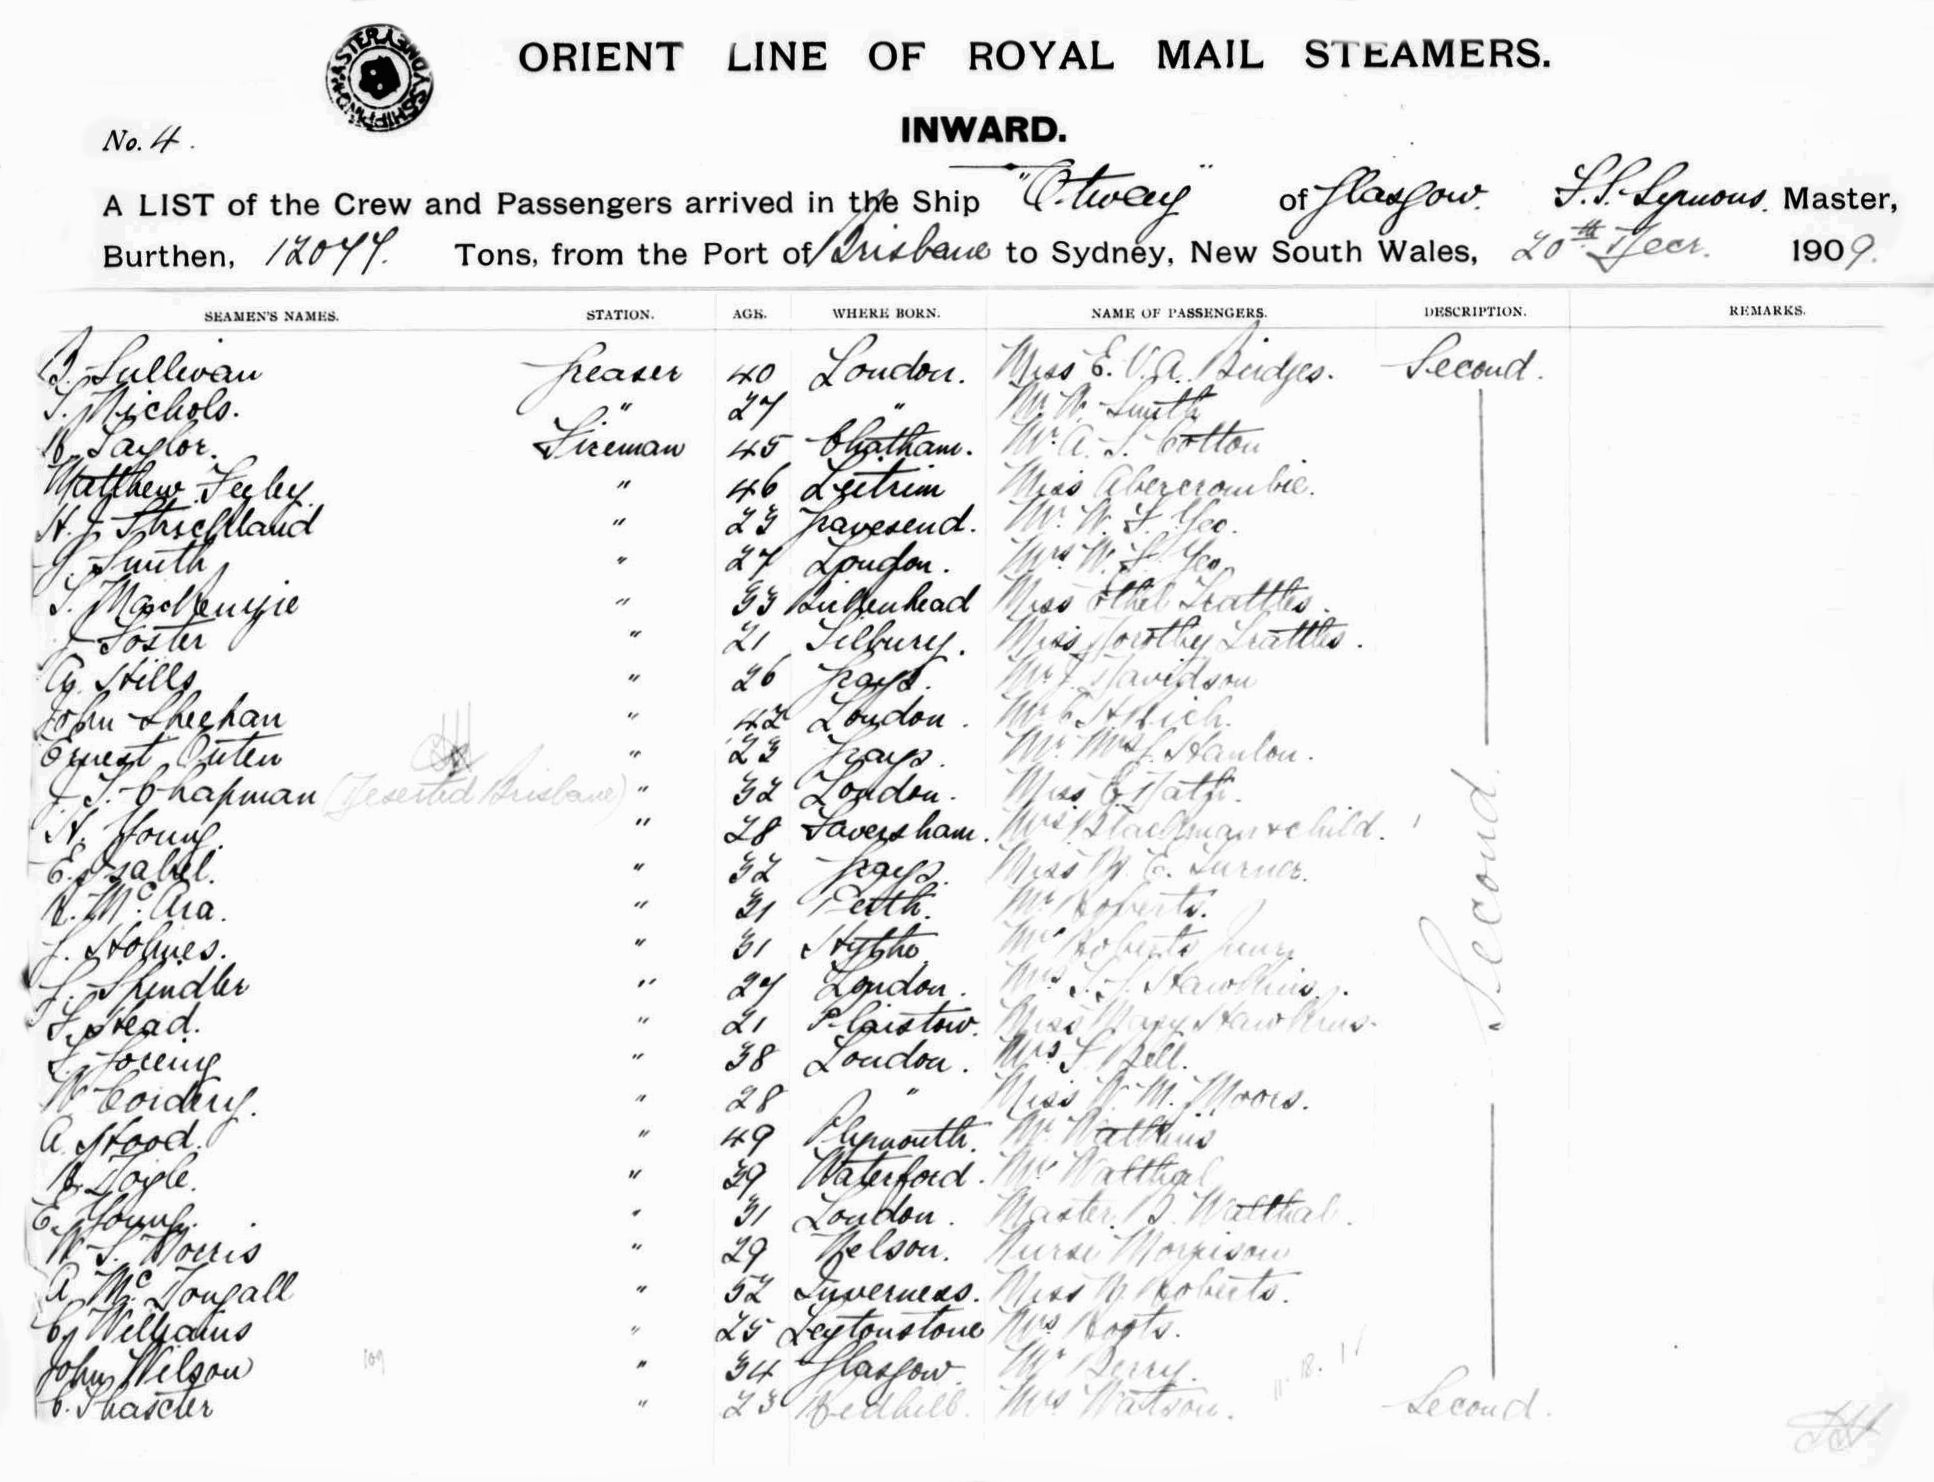 ORIENT LINE OF ROYAL MAIL STEAMERS.
INWARD.
No. 4.
A LIST of the Crew and Passengers arrived in the Ship "Otway" of Glasgow. F.S. Symons. Master,
Burthen, 12077. Tons, from the Port of Brisbane to Sydney, New South Wales, 20th Decr. 1909.
SEAMEN'S NAMES. STATION. AGE. WHERE BORN. NAME OF PASSENGERS. DESCRIPTION. REMARKS.
Sullivan Greaser 40 London. Miss E. V. A. Bridges. Second.
Nichols. " 27 " Mr W. Smith
Taylor. Fireman 45 Chatham. Mr A. S. Cotton
Matthew Feeley " 46 Leitrim Miss Abercrombie.
H. J. Strickland " 23 Gravesend. Mr. W. F. Geo.
J. Smith " 27 London. Mrs W. F. Geo
MacKenzie " 33 Birkenhead Miss Ethel Trattles.
J. Foster " 21 Tilbury. Miss Dorothy Trattles.
Hills " 26 Grays. Mr J. Davidson
John Sheehan " 42 London. Mr C. H. Rich.
Ernest Outen " 23 Grays. Mr. Mrs J. Hanlon.
J. T. Chapman (Deserted Brisbane) " 32 London. Miss E.
H. Young. " 28 Faversham. Mrs Blackman & child.
E. Isabel. " 32 Grays. Miss M. E. Turner.
McAra. " 31 Perth. Mr Roberts.
J. Holmes. " 31 Hythe Mr Roberts Junr
Spindler " 27 London. Mrs Hawkins.
F. Head. " 21 Plaistow. Miss Mary Hawkins.
" 38 London. Mrs Bell.
W. Cordery. " 28 " Miss W. M. Moors.
A. Hood. " 49 Plymouth. Mr. Watkins
Doyle. " 39 Waterford. Mr Walthal
E. Young. " 31 London. Master B. Walthal.
W. S. Norris " 29 Nelson. Nurse Morrison
A. McDougall " 52 Inverness. Miss M. Roberts.
Williams " 25 Leytonstone Mrs
John Wilson 109 " 34 Glasgow. Mr Berry.
C. " 23 Redhill. Mrs Watson. Second.
Second